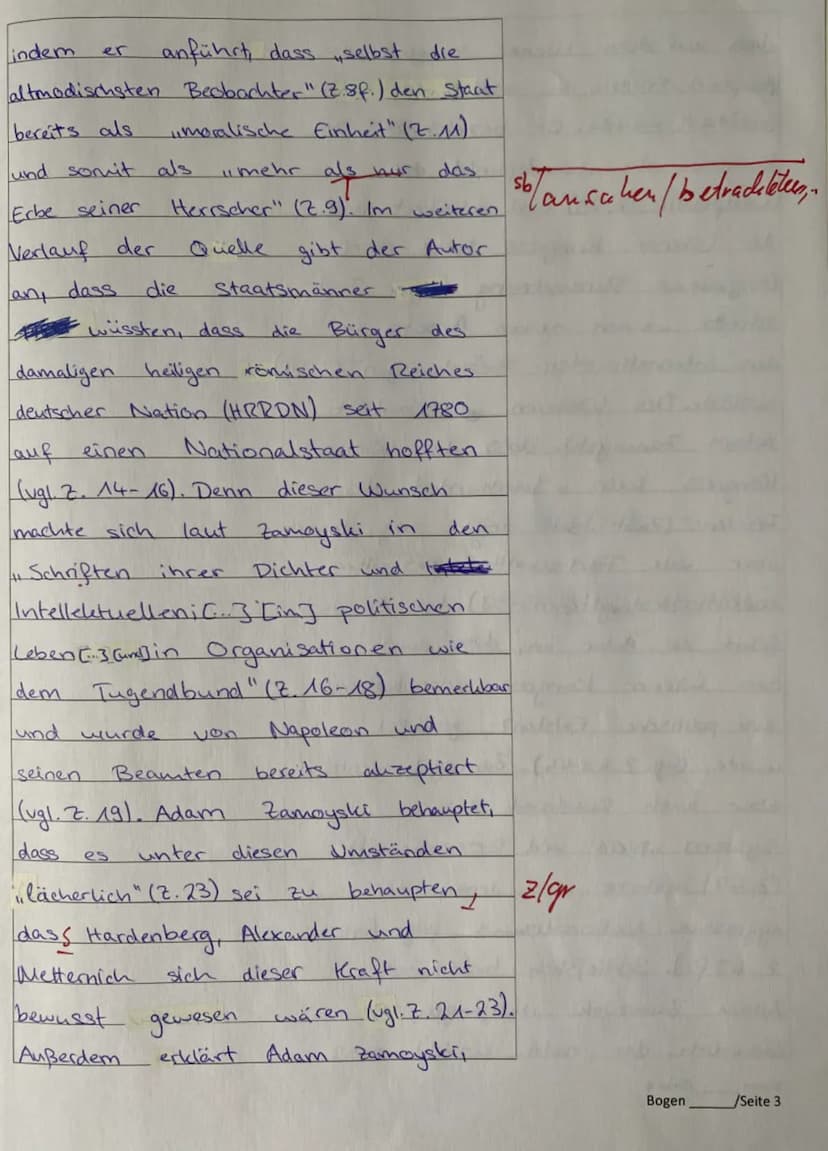 indem er anführt, dass „selbst die
altmodischsten Beobachter" (Z.8f.) den Staat
bereits als „moralische Einheit" (Z.11)
und somit als „mehr als nur das
sb/ansehen/betrachteten,
Erbe seiner Herrscher" (Z.9). Im weiteren
Verlauf der Quelle gibt der Autor
an, dass die Staatsmänner
wüssten, dass die Bürger des
damaligen heiligen römischen Reiches
deutscher Nation (HRRDN) seit 1780
auf einen Nationalstaat hofften
(vgl. Z. 14-16). Denn dieser Wunsch
machte sich laut Zamoyski in den
„Schriften ihrer Dichter und
Intellektuellen; [...] [in] politischen
Leben [...] [und] in Organisationen wie
dem Tugendbund" (Z. 16-18) bemerkbar
und wurde von Napoleon und
seinen Beamten bereits akzeptiert
(vgl. Z. 19). Adam Zamoyski behauptet,
dass es unter diesen Umständen
„lächerlich" (Z.23) sei zu behaupten,
z/gr
dass Hardenberg, Alexander und
Metternich sich dieser Kraft nicht
bewusst gewesen wären (vgl. Z. 21-23).
Außerdem erklärt Adam Zamoyski,
Bogen ______/Seite 3